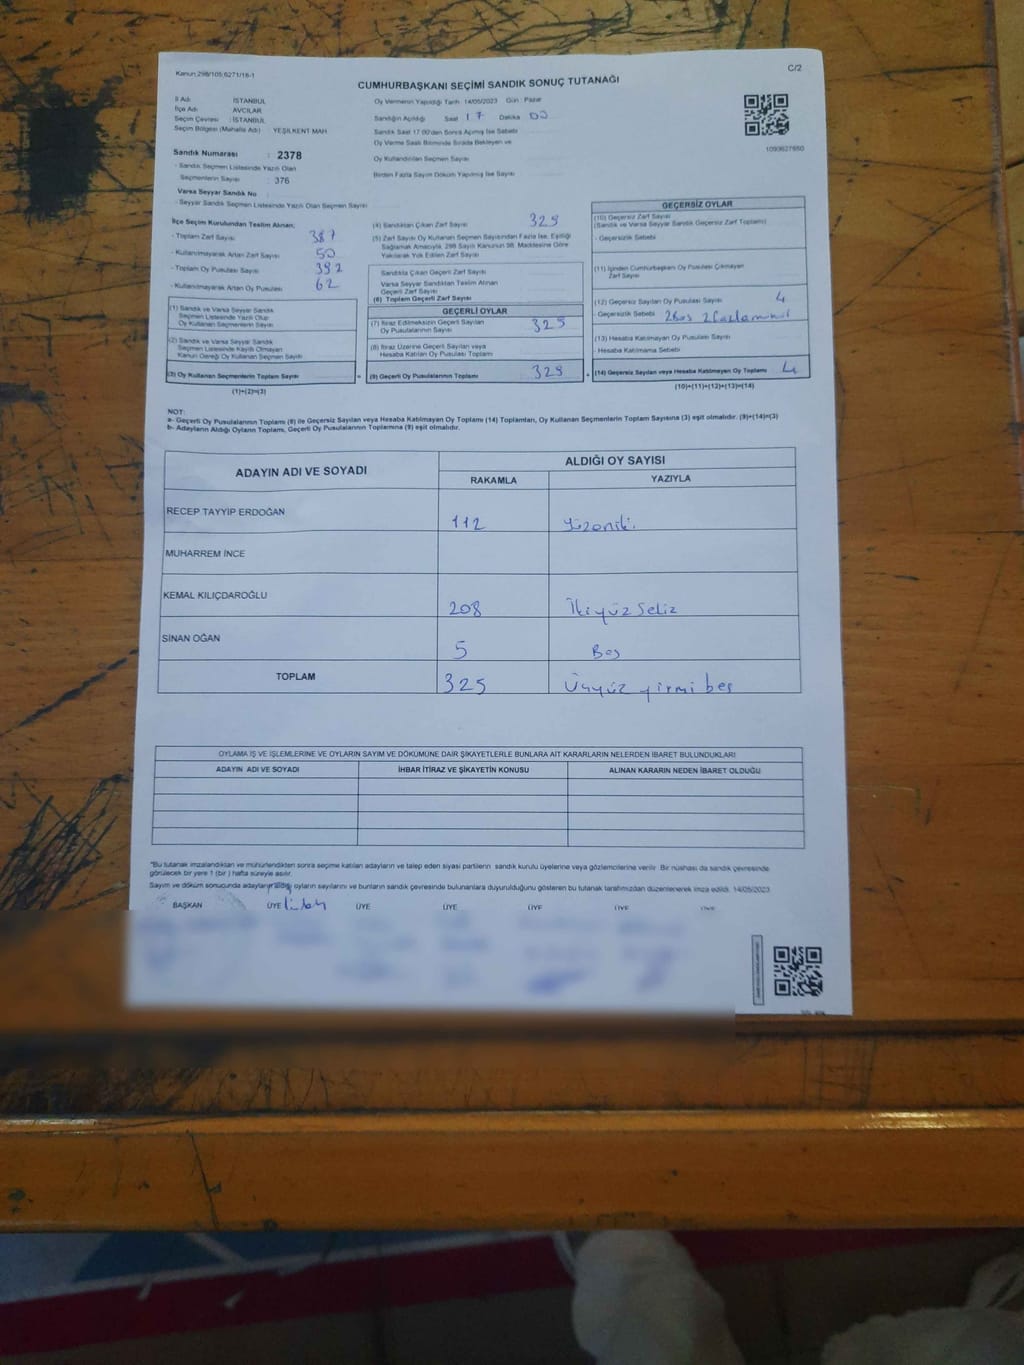 Kanun:298/105;6271/16-1
C/2
CUMHURBAŞKANI SEÇİMİ SANDIK SONUÇ TUTANAĞI
İl Adı : İSTANBUL
İlçe Adı : AVCILAR
Seçim Çevresi : İSTANBUL
Seçim Bölgesi (Mahalle Adı) : YEŞİLKENT MAH
Sandık Numarası : 2378
- Sandık Seçmen Listesinde Yazılı Olan
Seçmenlerin Sayısı : 376
Varsa Seyyar Sandık No
- Seyyar Sandık Seçmen Listesinde Yazılı Olan Seçmen Sayısı
Oy Vermenin Yapıldığı Tarih 14/05/2023 Gün : Pazar
Sandığın Açıldığı Saat 17 Dakika 00
Sandık Saat 17:00'den Sonra Açılmış İse Sebebi
Oy Verme Saati Bitiminde Sırada Bekleyen ve
Oy Kullandırılan Seçmen Sayısı
Birden Fazla Sayım Döküm Yapılmış İse Sayısı
1093627650
İlçe Seçim Kurulundan Teslim Alınan;
- Toplam Zarf Sayısı 387
- Kullanılmayarak Artan Zarf Sayısı 50
- Toplam Oy Pusulası Sayısı 392
- Kullanılmayarak Artan Oy Pusulası 62
(1) Sandık ve Varsa Seyyar Sandık
Seçmen Listesinde Yazılı Olup
Oy Kullanan Seçmenlerin Sayısı
(2) Sandık ve Varsa Seyyar Sandık
Seçmen Listesinde Kayıtlı Olmayan
Kanun Gereği Oy Kullanan Seçmen Sayısı
(3) Oy Kullanan Seçmenlerin Toplam Sayısı
(1)+(2)=(3)
(4) Sandıktan Çıkan Zarf Sayısı 329
(5) Zarf Sayısı Oy Kullanan Seçmen Sayısından Fazla İse, Eşitliği
Sağlamak Amacıyla, 298 Sayılı Kanunun 98. Maddesine Göre
Yakılarak Yok Edilen Zarf Sayısı
Sandıkta Çıkan Geçerli Zarf Sayısı
Varsa Seyyar Sandıktan Teslim Alınan
Geçerli Zarf Sayısı
(6) Toplam Geçerli Zarf Sayısı
GEÇERLİ OYLAR
(7) İtiraz Edilmeksizin Geçerli Sayılan
Oy Pusulalarının Sayısı 325
(8) İtiraz Üzerine Geçerli Sayılan veya
Hesaba Katılan Oy Pusulası Toplamı
(9) Geçerli Oy Pusulalarının Toplamı
GEÇERSİZ OYLAR
(10) Geçersiz Zarf Sayısı
(Sandık ve Varsa Seyyar Sandık Geçersiz Zarf Toplamı)
- Geçersizlik Sebebi
(11) İçinden Cumhurbaşkanı Oy Pusulası Çıkmayan
Zarf Sayısı
(12) Geçersiz Sayılan Oy Pusulası Sayısı 4
- Geçersizlik Sebebi 2 Boş 2 Fazla
(13) Hesaba Katılmayan Oy Pusulası Sayısı
- Hesaba Katılmama Sebebi
(14) Geçersiz Sayılan veya Hesaba Katılmayan Oy Toplamı 4
(10)+(11)+(12)+(13)=(14)
NOT:
a- Geçerli Oy Pusulalarının Toplamı (9) ile Geçersiz Sayılan veya Hesaba Katılmayan Oy Toplamı (14) Toplamları, Oy Kullanan Seçmenlerin Toplam Sayısına (3) eşit olmalıdır. (9)+(14)=(3)
b- Adayların Aldığı Oyların Toplamı, Geçerli Oy Pusulalarının Toplamına (9) eşit olmalıdır.
ADAYIN ADI VE SOYADI
ALDIĞI OY SAYISI
RAKAMLA YAZIYLA
RECEP TAYYİP ERDOĞAN 112 Yüzoniki
MUHARREM İNCE
KEMAL KILIÇDAROĞLU 208 İkiyüz Sekiz
SİNAN OĞAN 5 Beş
TOPLAM 325 Üçyüz yirmi beş
OYLAMA İŞ VE İŞLEMLERİNE VE OYLARIN SAYIM VE DÖKÜMÜNE DAİR ŞİKAYETLERLE BUNLARA AİT KARARLARIN NELERDEN İBARET BULUNDUKLARI
ADAYIN ADI VE SOYADI İHBAR İTİRAZ VE ŞİKAYETİN KONUSU ALINAN KARARIN NEDEN İBARET OLDUĞU
"Bu tutanak imzalandıktan ve mühürlendikten sonra seçime katılan adayların ve talep eden siyasi partilerin sandık kurulu üyelerine veya gözlemcilerine verilir. Bir nüshası da sandık çevresinde
görülecek bir yere 1 (bir) hafta süreyle asılır.
Sayım ve döküm sonucunda adayların aldığı oyların sayılarını ve bunların sandık çevresinde bulunanlara duyurulduğunu gösteren bu tutanak tarafımızdan düzenlenerek imza edildi. 14/05/2023
BAŞKAN ÜYE ÜYE ÜYE ÜYE ÜYE ÜYE